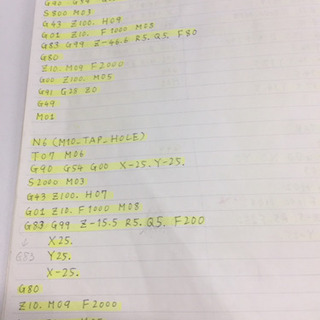 G90 G54 G00
S800 M03
G43 Z100. H09
G01 Z10. F1000 M08
G83 G99 Z-46.6 R5. Q5. F80
G80
Z10. M09 F2000
G00 Z100. M05
G91 G28 Z0
G49
M01
N6 (M10_TAP_HOLE)
T07 M06
G90 G54 G00 X-25. Y-25.
S2000 M03
G43 Z100. H07
G01 Z10. F1000 M08
G83 G99 Z-15.5 R5. Q5. F200
↓ X25.
G83 Y25.
X-25.
G80
Z10. M09 F2000